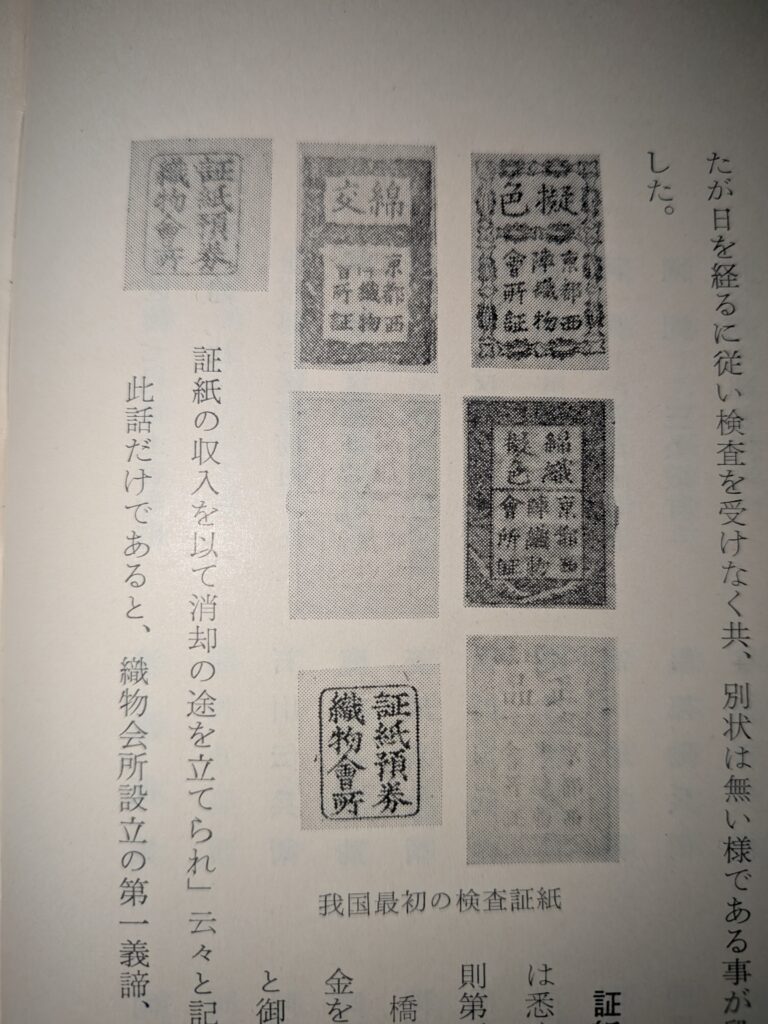 たが日を経るに従い検査を受けなく共、別状は無い様である事が
した。
擬色
京都西
陣織物
會所証
綿交
京都西
陣織物
會所証
証紙預券
織物會所
綿織
擬色
京都西
陣織物
會所証
証紙預券
織物會所
我国最初の検査証紙
証
は悉
則第
橋
金を
と御
証紙の収入を以て消却の途を立てられ」云々と記
此話だけであると、織物会所設立の第一義諦、